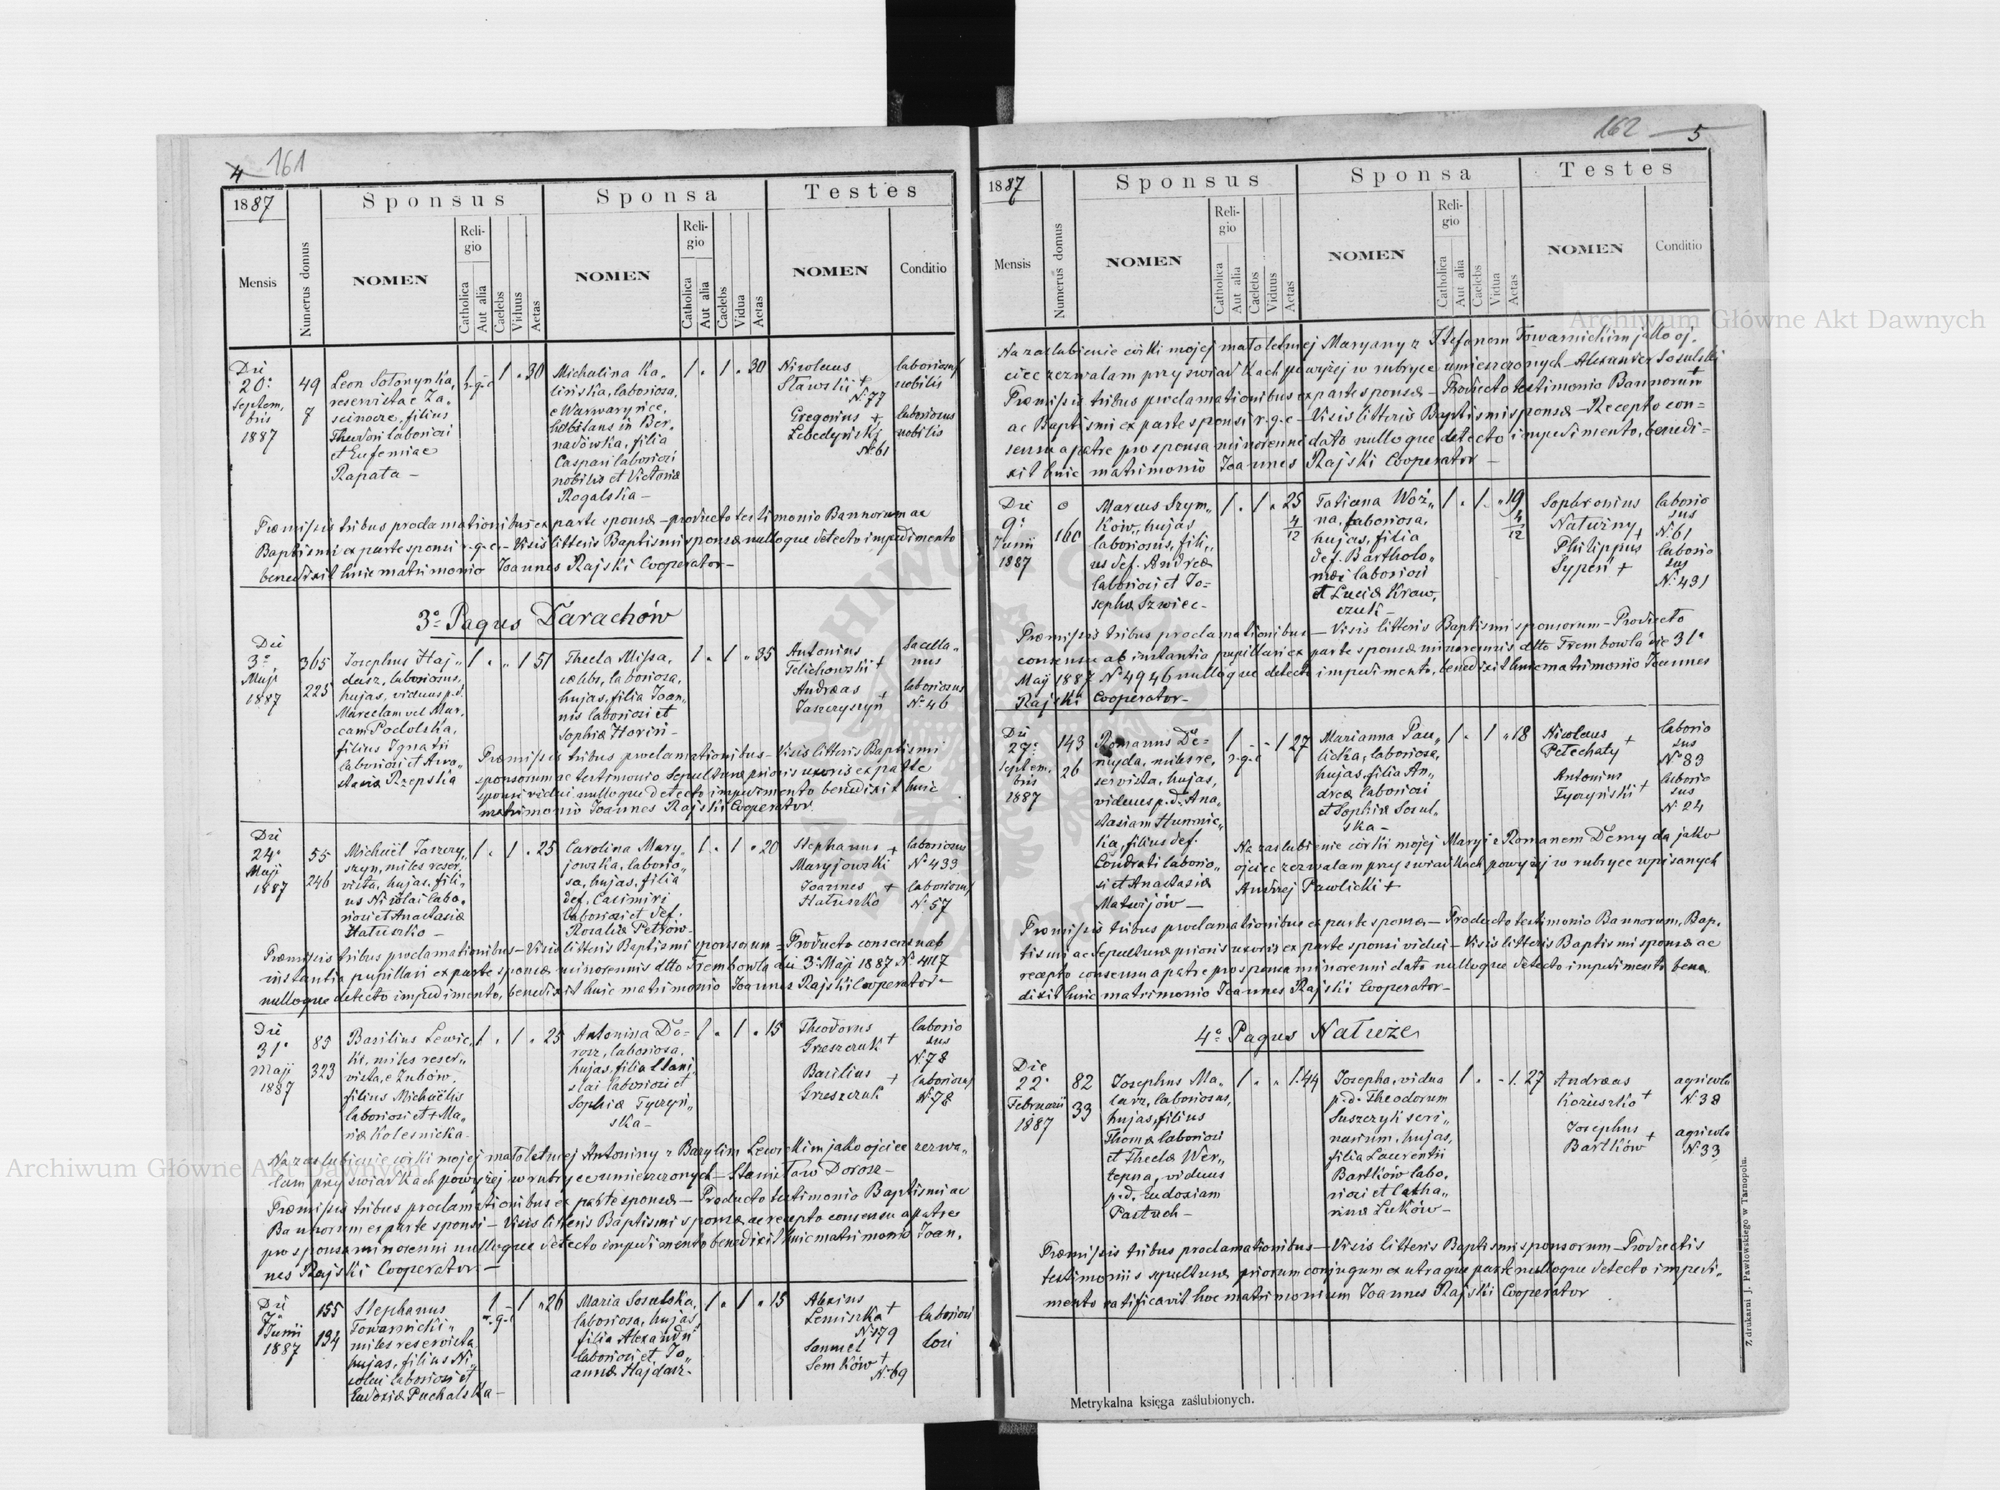 4 161
1887
Sponsus
Sponsa
Testes
Mensis
Numerus domus
NOMEN
Religio
Catholica
Aut alia
Caelebs
Viduus
Aetas
NOMEN
Religio
Catholica
Aut alia
Caelebs
Vidua
Aetas
NOMEN
Conditio
Die
20a
Septem,
bris
1887
49
7
Leon Sotonynka,
reservista e Za-
scinocze, filius
Theodori laboriosi
et Eufemiae
Rapata –
1
r.g.c
1 . 30
Michalina Ka,
lińska, laboriosa,
e Warwaryńce,
habitans in Ber-
nadówka, filia
Caspari laboriosi
nobilis et Victoriæ
Rogalska –
1 . 1 . 30
Nicolaus
Stawski +
N. 77
Gregorius +
Lebedyński
N. 61
laboriosus
nobilis
laboriosus
nobilis
Præmissis tribus proclamationibus ex parte sponsæ – producto testimonio Bannorum ac
Baptismi ex parte sponsi r.g.c. – Visis litteris Baptismi sponsæ nulloque detecto impedimento
benedixit huic matrimonio Joannes Rajski Cooperator –
3o Pagus Darachów
Die
3a
Maji
1887
365
225
Josephus Haj„
dasz, laboriosus,
hujas, viduus p.d.
Marcelam vel Mar,
cam Podolska,
filius Ignatii
laboriosi et
Rzepska
1 . „ 1 51
Thecla Missa,
cælebs, laboriosa,
hujas, filia Joan,
nis laboriosi et
Sophiæ Horin –
1 . 1 „ 35
Antonius
Telichowski +
Andræas
Jaszczyszyn +
Sacella-
nus
laboriosus
N. 46
Præmissis tribus proclamationibus – Visis litteris Baptismi
sponsorum ac testimonio Sepulturæ prioris uxoris ex parte
sponsi vidui nulloque detecto impedimento benedixit huic
matrimonio Joannes Rajski Cooperator.
Die
24a
Maji
1887
55
246
Michaël Jaszczy,
szyn, miles reser,
vista, hujas, fili,
us Nicolai labo,
riosi et Anastasiæ
Hałuszko –
1 . 1 . 25
Carolina Mary,
jowska, laborio„
sa, hujas, filia
def. Casimiri
laboriosi et def.
Rosaliæ Petrów –
1 . 1 . 20
Stephanus +
Maryjowski
Joannes +
Hałuszko
laboriosus
N. 433
laboriosus
N. 57
Præmissis tribus proclamationibus – Visis litteris Baptismi sponsorum – Producto consensu ab
instantia pupillari ex parte sponsæ minorennis dtto Trembowla die 3a Maji 1887 N. 4117
nulloque detecto impedimento, benedixit huic matrimonio Joannes Rajski Cooperator –
Die
31a
Maji
1887
83
323
Basilius Lewic,
ki, miles reser„
vista, e Zubów,
filius Michaëlis
laboriosi et + Ma-
riæ Kolesnicka
1 . 1 . 25
Antonina Do-
rosz, laboriosa,
hujas, filia Stani,
slai laboriosi et
Sophiæ Tyczyń„
ska –
1 . 1 . 15
Theodorus
Greszczuk +
Basilius +
Greszczuk
laborio
sus
N. 78
laboriosus
N. 78
Na zaslubienie córki mojej małoletniej Antoniny z Bazylim Lewickim jako ojciec zezwa„
lam przy świadkach powyżej w rubryce umieszczonych – Stanisław Dorosz –
Præmissis tribus proclamationibus ex parte sponsæ – Producto testimonio Baptismi ac
Bannorum ex parte sponsi – Visis litteris Baptismi sponsæ ac recepto consensu a patre
pro sponsa minorenni nulloque detecto impedimento benedixit huic matrimonio Joan,
nes Rajski Cooperator –
Die
7a
Junii
1887
155
134
Stephanus
Towarnicki„
miles reservista
hujas, filius Ni„
colai laboriosi et
Eudoxiæ Puchalska –
1
r.g.c
1 „ 26
Maria Sosulska,
laboriosa, hujas,
filia Alexandri
laboriosi et Jo„
annæ Hajdasz –
1 . 1 . 15
Alexius
Lemiszka +
N. 179
Samuel
Semków +
N. 69
laboriosi
162 5
1887
Sponsus
Sponsa
Testes
Mensis
Numerus domus
NOMEN
Religio
Catholica
Aut alia
Caelebs
Viduus
Aetas
NOMEN
Religio
Catholica
Aut alia
Caelebs
Vidua
Aetas
NOMEN
Conditio
Na zaslubienie córki mojej małoletniej Maryany z Stefanem Towarnickim jako oj,
ciec zezwalam przy świadkach powyżej w rubryce umieszczonych – Alexander Sosulski +
Præmissis tribus proclamationibus ex parte sponsæ – Producto testimonio Bannorum
ac Baptismi ex parte sponsi r.g.c – Visis litteris Baptismi sponsæ – Recepto con=
sensu a patre pro sponsa minorenni dato nulloque detecto impedimento, benedi-
xit huic matrimonio Joannes Rajski Cooperator –
Die
9a
Junii
1887
0
160
Marcus Szym„
ków, hujas
laboriosus, fili„
us def. Andreæ
laboriosi et Jo-
sephæ Szwiec –
1 . 1 . 25
4
12
Tatiana Woź„
na, laboriosa,
hujas, filia
def. Bartholo„
mæi laboriosi
et Luciæ Kraw,
czuk –
1 . 1 . 19
4
12
Sophronius
Natużny +
Philippus
Sypen +
laborio
sus
N. 61
laborio
sus
N. 431
Præmissis tribus proclamationibus – Visis litteris Baptismi sponsorum – Producto
consensu ab instantia pupillari ex parte sponsæ minorennis dtto Trembowla die 31a
Maji 1887 N. 4946 nulloque detecto impedimento, benedixit huic matrimonio Joannes
Rajski Cooperator –
Die
27a
Septem,
bris
1887
143
26
Romanus De-
myda, miles re,
servista, hujas,
viduus p.d. Ana„
stasiam Humnic„
ka, filius def.
Condrati laborio„
si et Anastasiæ
Matwijów –
1
r.g.c
- - 1 27
Marianna Paw„
licka, laboriosa,
hujas, filia An„
dreæ laboriosi
et Sophiæ Sosul„
ska –
1 . 1 „ 18
Nicolaus
Petechaty +
Antonius
Tyczyński +
laborio
sus
N. 83
laborio
sus
N. 24
Na zaslubienie córki mojej Maryi z Romanem Demydą jako
ojciec zezwalam przy świadkach powyżej w rubryce wpisanych
Andrzej Pawlicki +
Præmissis tribus proclamationibus ex parte sponsæ – Producto testimonio Bannorum, Bap,
tismi ac Sepulturæ prioris uxoris ex parte sponsi vidui – Visis litteris Baptismi sponsæ ac
recepto consensu a patre pro sponsa minorenni dato nulloque detecto impedimento bene„
dixit huic matrimonio Joannes Rajski Cooperator –
4o Pagus Nałuże
Die
22a
Februarii
1887
82
33
Josephus Ma„
larz, laboriosus,
hujas, filius
Thomæ laboriosi
et Theclæ Wer„
tepna, viduus
p.d. Eudoxiam
Pastuch –
1 . „ 1.44
Josepha, vidua
p.d. Theodorum
Suszczyk
hujas,
filia Laurentii
Bartków labo,
riosi et Catha„
rinæ Luków –
1 . - 1. 27
Andræas
Koziuszko +
Josephus
Bartków +
agricola
N. 38
agricola
N. 33
Præmissis tribus proclamationibus – Visis litteris Baptismi sponsorum – Productis
testimoniis sepulturæ priorum conjugum ex utraque parte nulloque detecto impedi,
mento ratificavit hoc matrimonium Joannes Rajski Cooperator
Metrykalna księga zaślubionych.
Z drukarni J. Pawłowskiego w Tarnopolu.
Archiwum Główne Akt Dawnych
Archiwum Główne Akt Dawnych